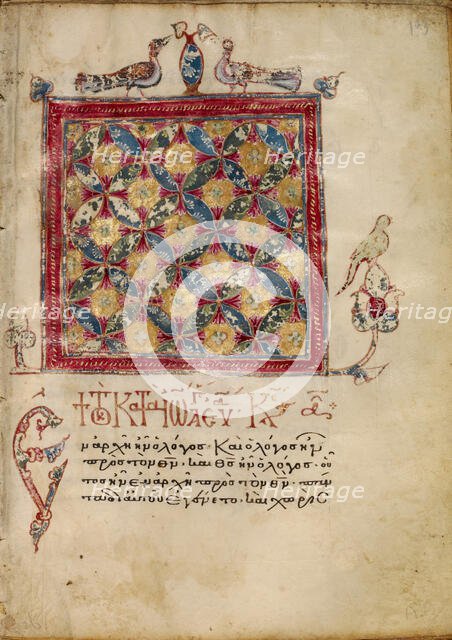 Heritage Heritage
Heritage Heritage Heritage
ΤΟ ΚΑΤΑ ΙΩ ΕΥ
Ἐν ἀρχῆ ἦν ὁ λόγος· καὶ ὁ λόγος ἦν
πρὸς τὸν θν̅· καὶ θς̅ ἦν ὁ λόγος· οὗ
τος ἦν ἐν ἀρχῆ πρὸς τὸν θν̅· πάν
τα δι' αὐτοῦ ἐγένετο· καὶ χωρὶς
Heritage Heritage